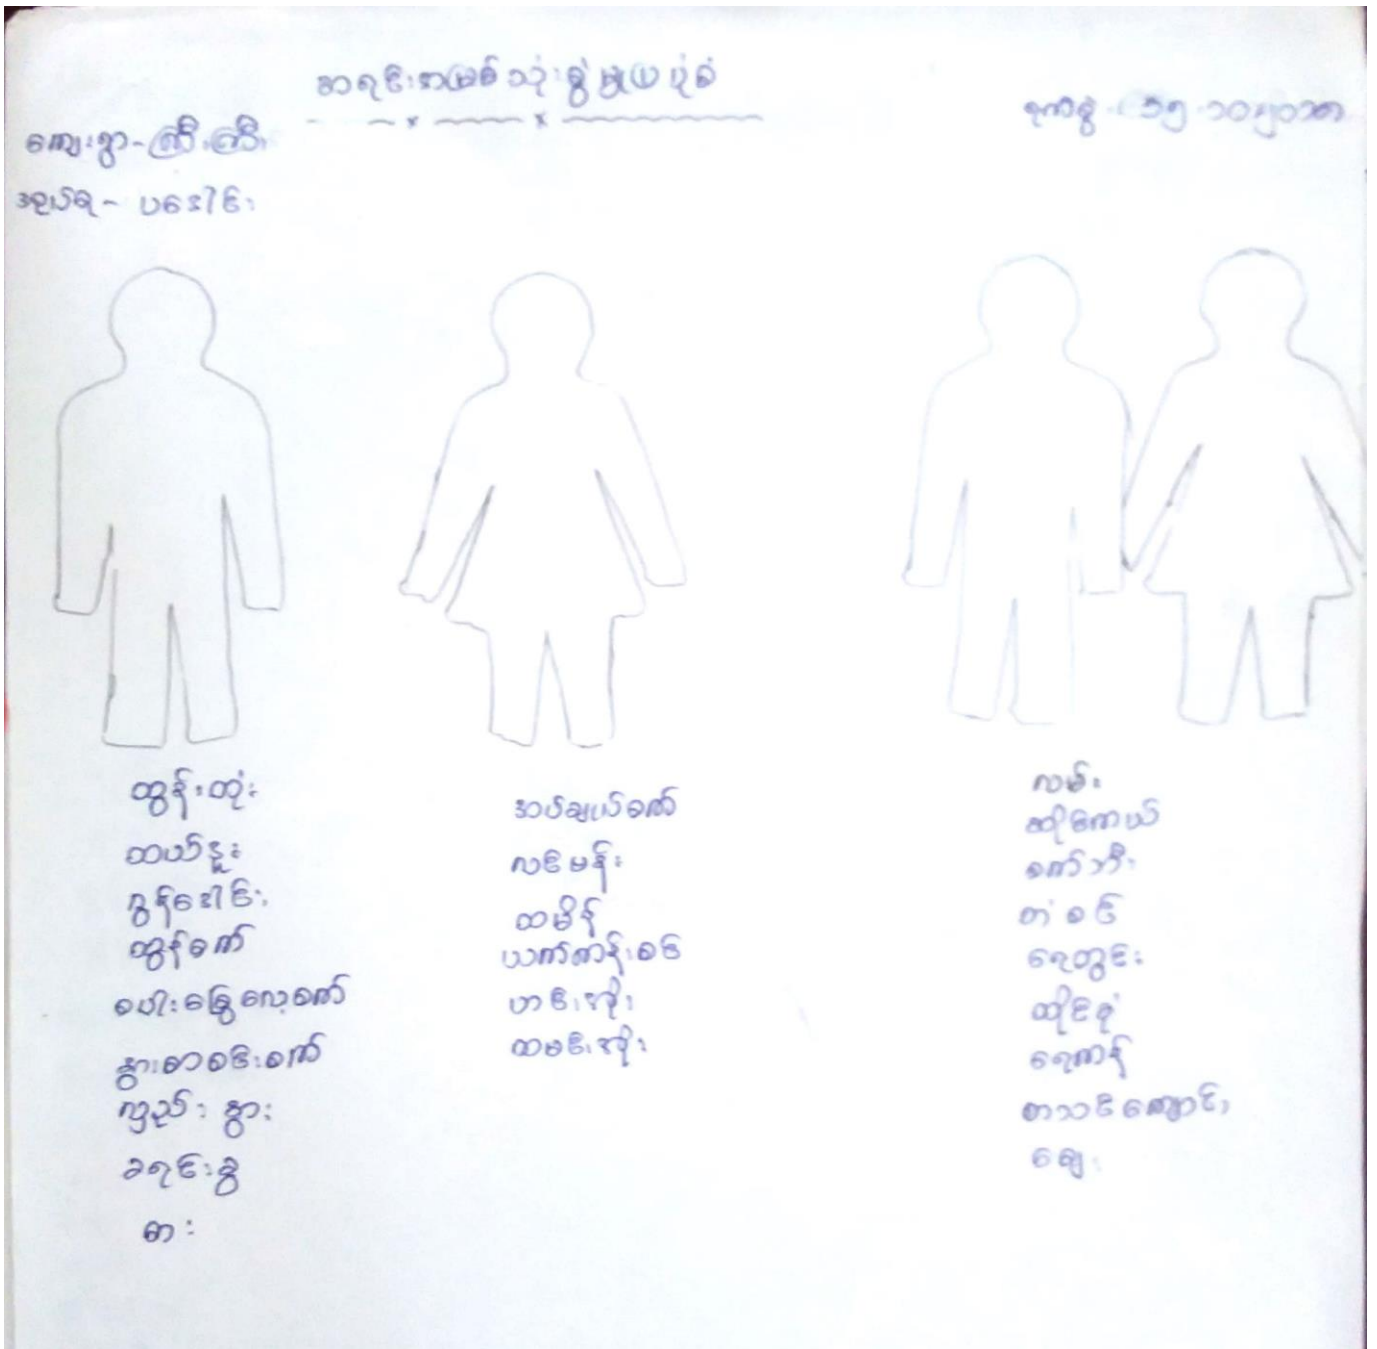 အရင်းအမြစ်သုံးစွဲမှုပြပုံစံ
ကျေးရွာ - ကြီးကြီး
အုပ်စု - ပဒေါင်း
ရက်စွဲ - ၁၅.၁၀.၂၀၁၈
ထွန်းတုံး
ထယ်နှူး
ဂွန်ဒေါင်း
ထွန်စက်
စပါးခြွေလှေ့စက်
နွားစာစင်းစက်
လှည်း နွား
ခရင်းခွ
ဓား
အပ်ချုပ်စက်
လင်မန်း
ထမိန်
ယက်ကန်းစင်
ဟင်းအိုး
ထမင်းအိုး
လမ်း
ဆိုင်ကယ်
စက်ဘီး
တံစဉ်
ရေတွင်း
ထိုင်ခုံ
ရေကန်
စာသင်ကျောင်း
ချေး